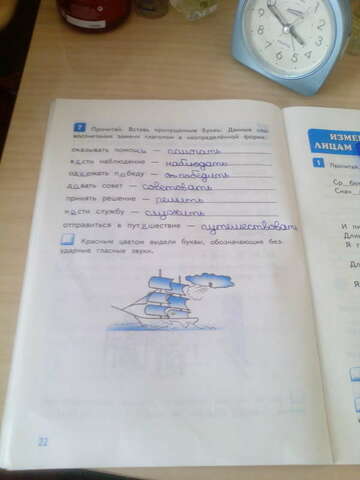 2 Прочитай. Вставь пропущенные буквы. Данные сло-
восочетания замени глаголом в неопределённой форме.
оказывать помощь — помогать
вести наблюдение — наблюдать
одержать победу — победить
давать совет — советовать
принять решение — решить
нести службу — служить
отправиться в путешествие — путешествовать
Красным цветом выдели буквы, обозначающие без-
ударные гласные звуки.
22
ИЗМЕ
ЛИЦАМ
1 Прочитай
И
Дли
Я